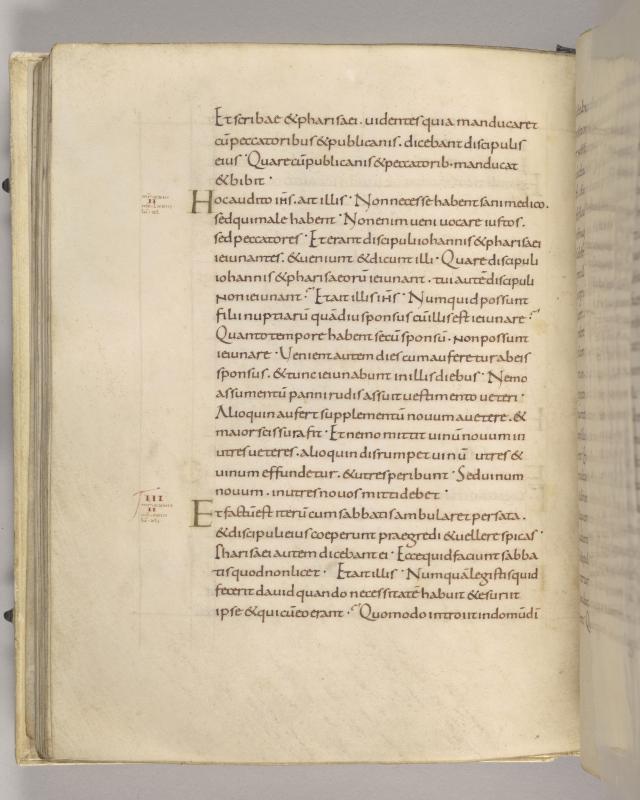 Et scribae & pharisaei . uidentes quia manducaret
cū peccatoribus & publicanis . dicebant discipulis
eius · Quare cū publicanis & peccatorib · manducat
& bibit ·
Hoc audito ih̄s . ait illis · Non necesse habent sani medico .
sed qui male habent · Non enim ueni uocare iustos .
sed peccatores · Et erant discipuli iohannis & pharisaei
ieiunantes . & ueniunt & dicunt illi · Quare discipuli
iohannis & pharisaeorū ieiunant . tui autē discipuli
non ieiunant · Et ait illis ih̄s · Numquid possunt
filii nuptiarū quādiu sponsus cū illis est ieiunare ·
Quanto tempore habent secū sponsū . non possunt
ieiunare · Uenient autem dies cum auferetur ab eis
sponsus . & tunc ieiunabunt in illis diebus · Nemo
assumentū panni rudis assuit uestimento ueteri ·
Alioquin aufert supplementū nouum a uetere . &
maior scissura fit · Et nemo mittit uinū nouum in
utres ueteres . alioquin disrumpet uinū utres &
uinum effundetur . & utres peribunt · Sed uinum
nouum . in utres nouos mitti debet ·
III
Et factū est iterū cum sabbatis ambularet per sata .
& discipuli eius coeperunt praegredi & uellere spicas ·
Pharisaei autem dicebant ei · Ecce quid faciunt sabba
tis quod non licet · Et ait illis · Numquā legistis quid
fecerit dauid quando necessitatē habuit & esuriit
ipse & qui cū eo erant · Quomodo introiit in domū dī